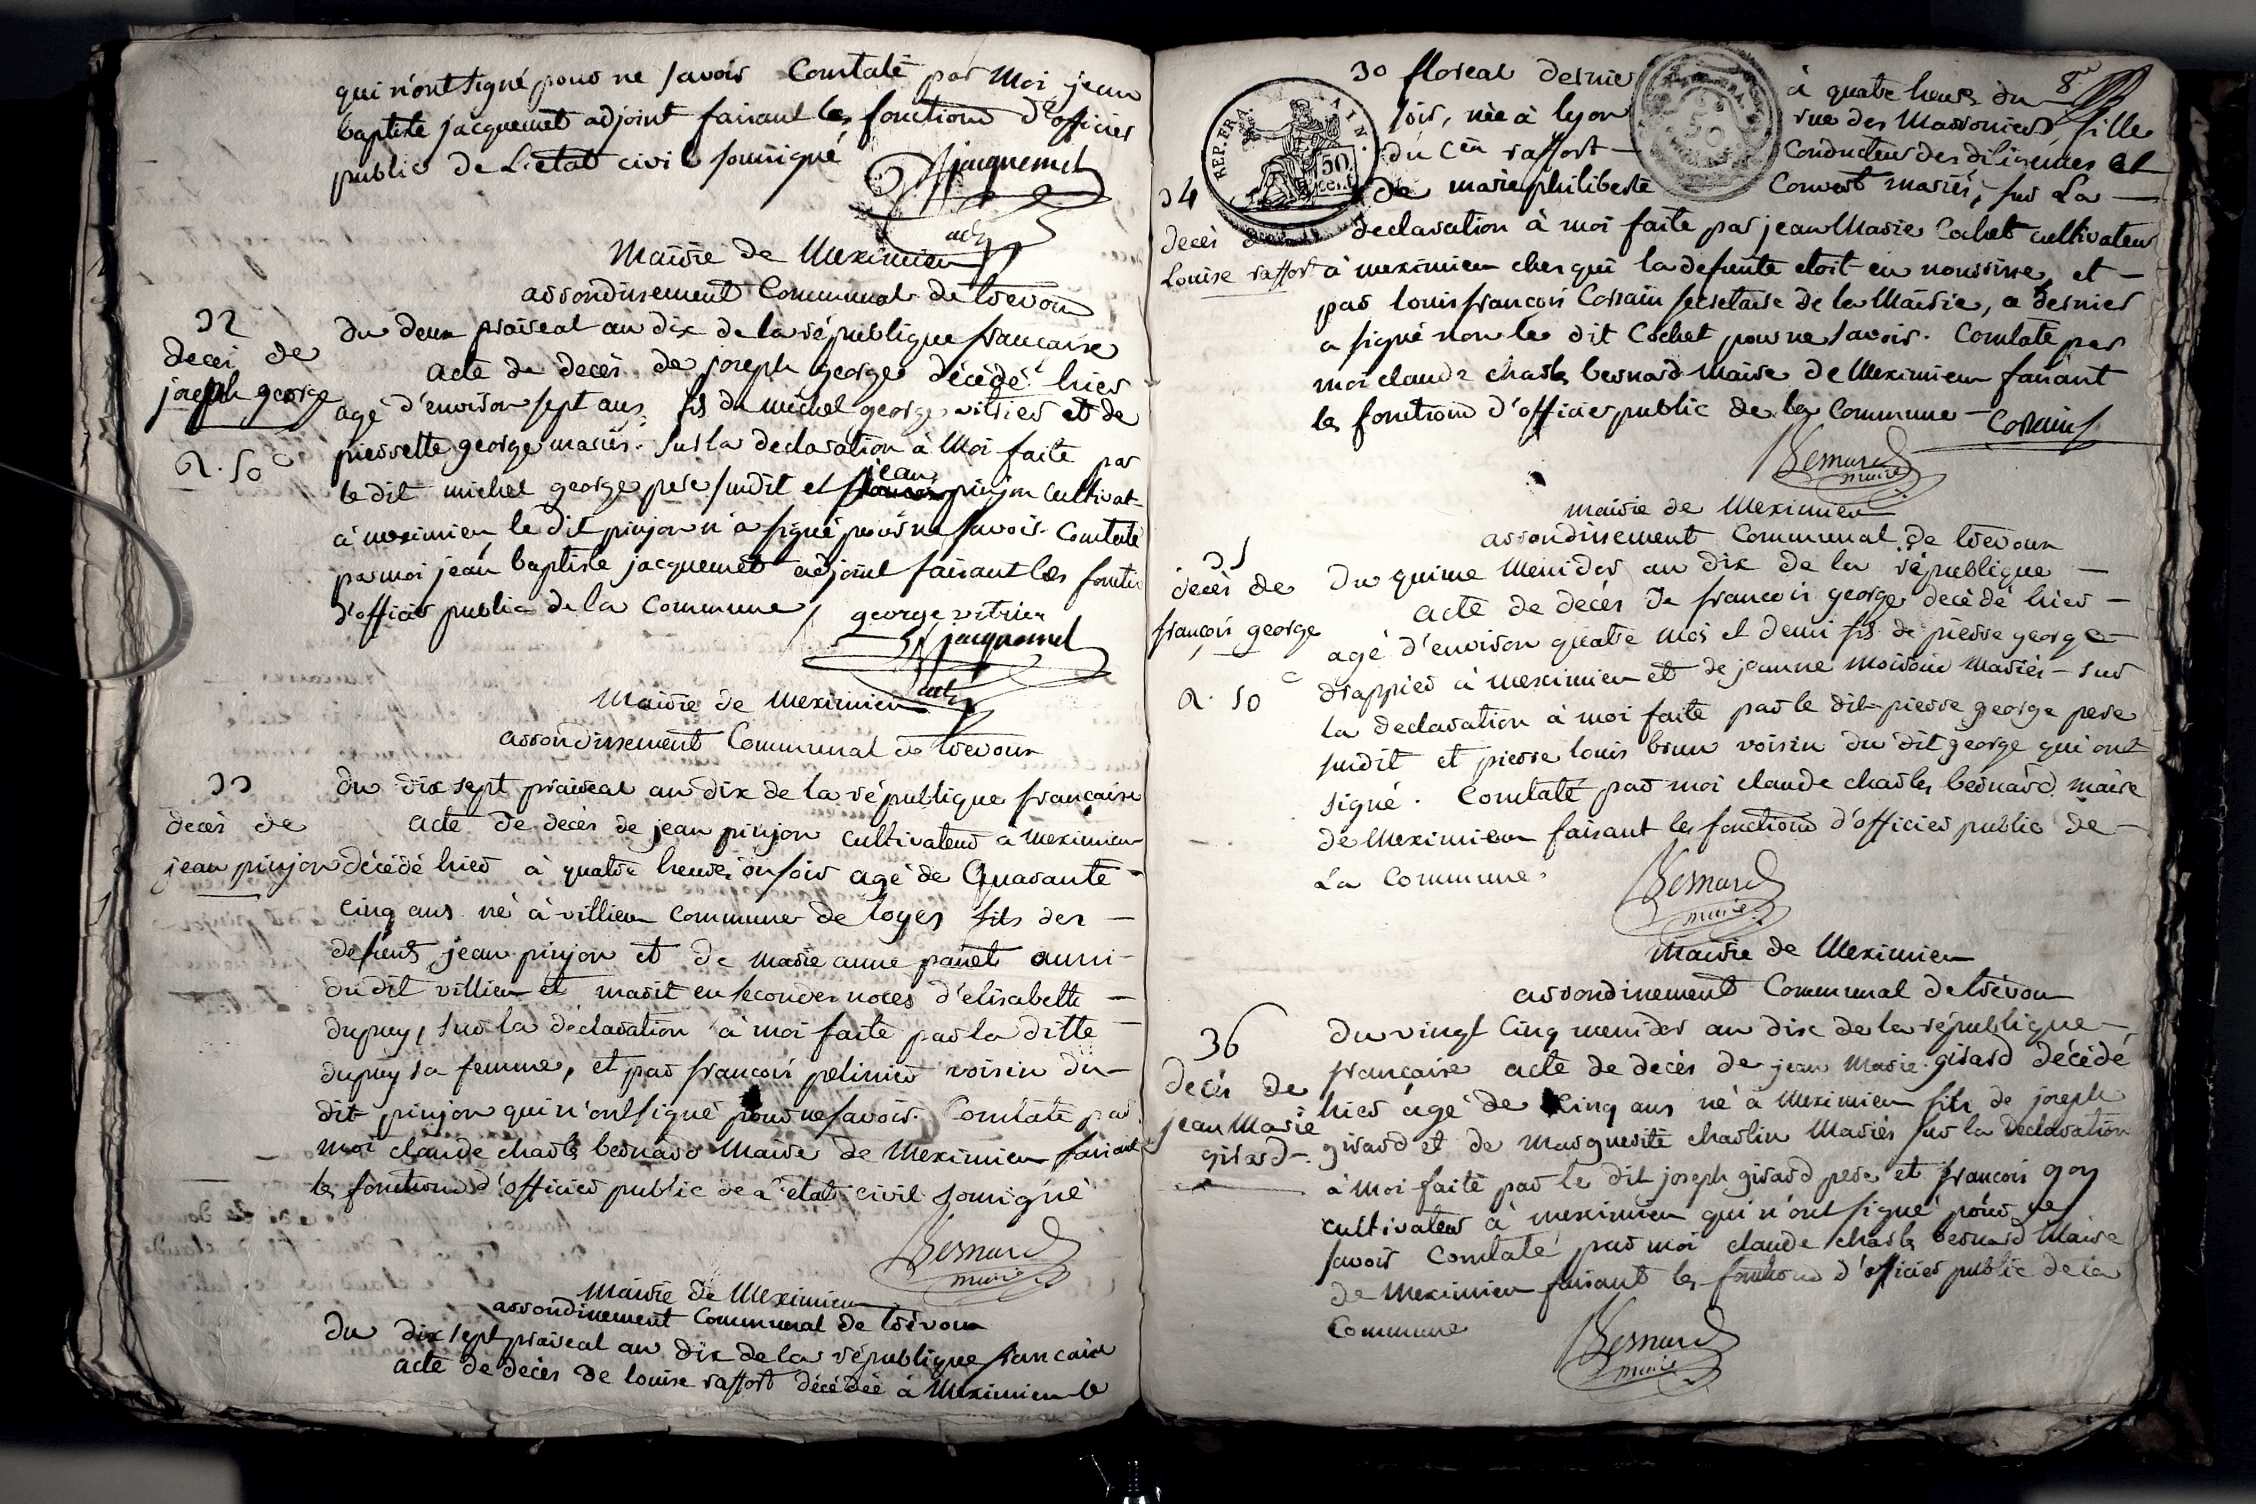 qui n'ont signé pour ne savoir Constaté par Moi jean
baptiste jacquemet adjoint faisant les fonctions d'officier
public de L'etat civil soussigné
jacquemet
adj
Mairie de Meximieu
arrondissement Communal de trevoux
32
décés de
joseph george
2. 50 c
du deux praireal an dix de la république francaise
acte de decés de joseph george décédé hier
agé d'environ sept ans, fils de michel george vitrier et de
pierrette george mariés. Sur la declaration à Moi faite par
le dit michel george pere susdit et jean pinjon cultivat
à meximieu le dit pinjon n'a signé pour ne savoir. Constaté
par moi jean baptiste jacquemet adjoint faisant les foncti
d'officier public de la Commune /
george vitrier
jacquemet
adj
Mairie de meximieu
arrondissement Communal de trevoux
33
decés de
jean pinjon
du dix sept prairéal an dix de la république française
acte de decés de jean pinjon cultivateur a meximieu
décédé hier à quatre heures du soir agé de Quarante
cinq ans né à villieu commune de loyes fils des
defunts jean pinjon et de marie anne panet aussi
du dit villieu et marit en secondes noces d'elisabette
dupuy, sur la déclaration à moi faite par la ditte
dupuy sa femme, et par francois pelinier voisin du
dit pinjon qui n'ont signé pour ne savoir. Constaté par
moi claude charles bernard Maire de Meximieu faisant
les fonctions d'officier public de l'état civil soussigné
Bernard
maire
Mairie de Meximieu
arrondissement Communal de trévoux
du dix sept prairéal an dix de la république francaise
acte de decés de louise raffort décédée à Meximieu le
8e
30 floreal dernier à quatre heures du
soir, née à lyon rue des Massoniers fille
du Cen raffort Conducteur des diligences et
de marie philiberte Convert mariés, sur La
34
decés de
Louise raffort
REP. FRA.
50
cent
declaration à moi faite par jean Marie Cochet cultivateur
à meximieu ches qui la defunte etoit en nourrisse, et
par louis françois Corrain secretaire de la Mairie, ce dernier
a signé non le dit Cochet pour ne savoir. Constaté par
moi claude charles bernard Maire de Meximieu faisant
les fonctions d'officier public de la Commune
Corrain
Bernard
maire
mairie de Meximieu
arrondissement Communal de trévoux
35
decés de
françois george
2. 50 c
Du quinze Messidor an dix de la république
acte de decés de francois george decédé hier
agé d'environ quatre mois et demi fils de pierre george
drappier à meximieu et de jeanne moiroud mariés - sur
la declaration à moi faite par le dit pierre george pere
susdit et pierre louis brun voisin du dit george qui ont
signé. Constaté par moi claude charles bernard maire
de Meximieu faisant les fonctions d'officier public de
La Commune.
Bernard
maire
Mairie de Meximieu
arrondissement Communal de trévoux
36
decés de
jean Marie
girard
du vingt Cinq messidor an dix de la république
française acte de decés de jean Marie girard décédé
hier agé de Cinq ans né à Meximieu fils de joseph
girard et de Marguerite charlin Mariés sur la declaration
à Moi faite par le dit joseph girard pere et francois goy
cultivateur à meximieu qui n'ont signé pour ne
savoir Constaté par moi claude charles bernard Maire
de Meximieu faisant les fonctions d'officier public de la
Commune
Bernard
maire